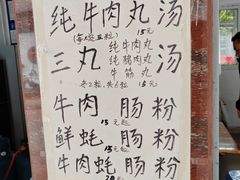 纯牛肉丸汤
(每大碗五粒) 15元
三丸 纯牛肉丸 汤
纯猪肉丸
牛筋丸
各2粒,共6粒 15元
牛肉肠粉
15元起
鲜蚝肠粉
15元起
牛肉蚝肠粉
20元